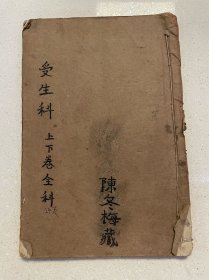 受生科
上下卷全科
陳冬梅藏